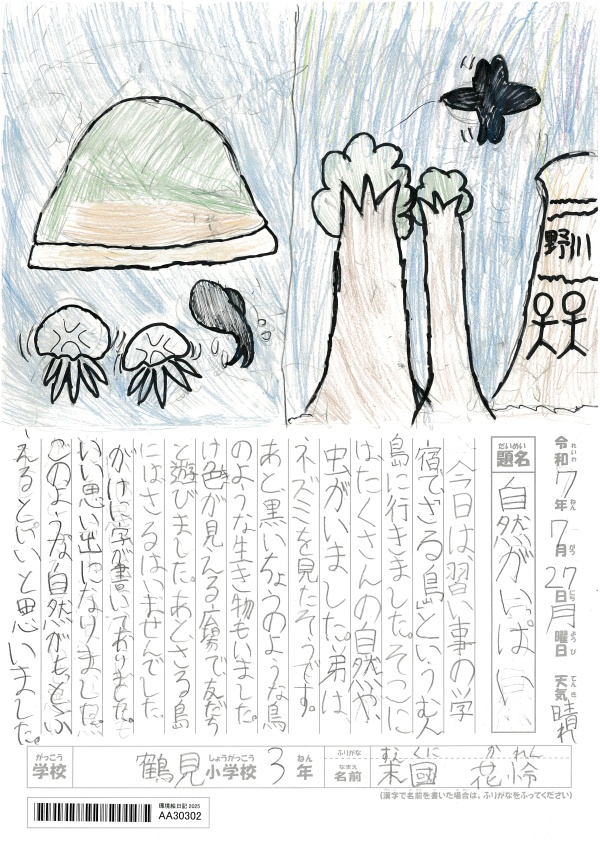 野川
令和7年7月27日月曜日 天気晴れ
れいわ ねん がつ にち ようび てんき
だいめい
題名 自然がいっぱい
今日は習い事の学
宿でざる島」というむ人
島に行きました。そこに
は、たくさんの自然や、
虫がいました。弟は、
ネズミを見たそうです。
あと黒いちょうのような鳥
のような生き物もいました。
け色が見える広場で友だち
と遊びました。あとさる島
にはさるはいませんでした。
がけに字が書いてありました。も
いい思い出になりました。
このような自然がもっとふ
えるといいと思いました。
がっこう しょうがっこう ねん ふりがな すえくに かれん
学校 鶴見小学校 3年 なまえ 名前 末國 花怜
(漢字で名前を書いた場合は、ふりがなをふってください)
環境絵日記 2025
AA30302